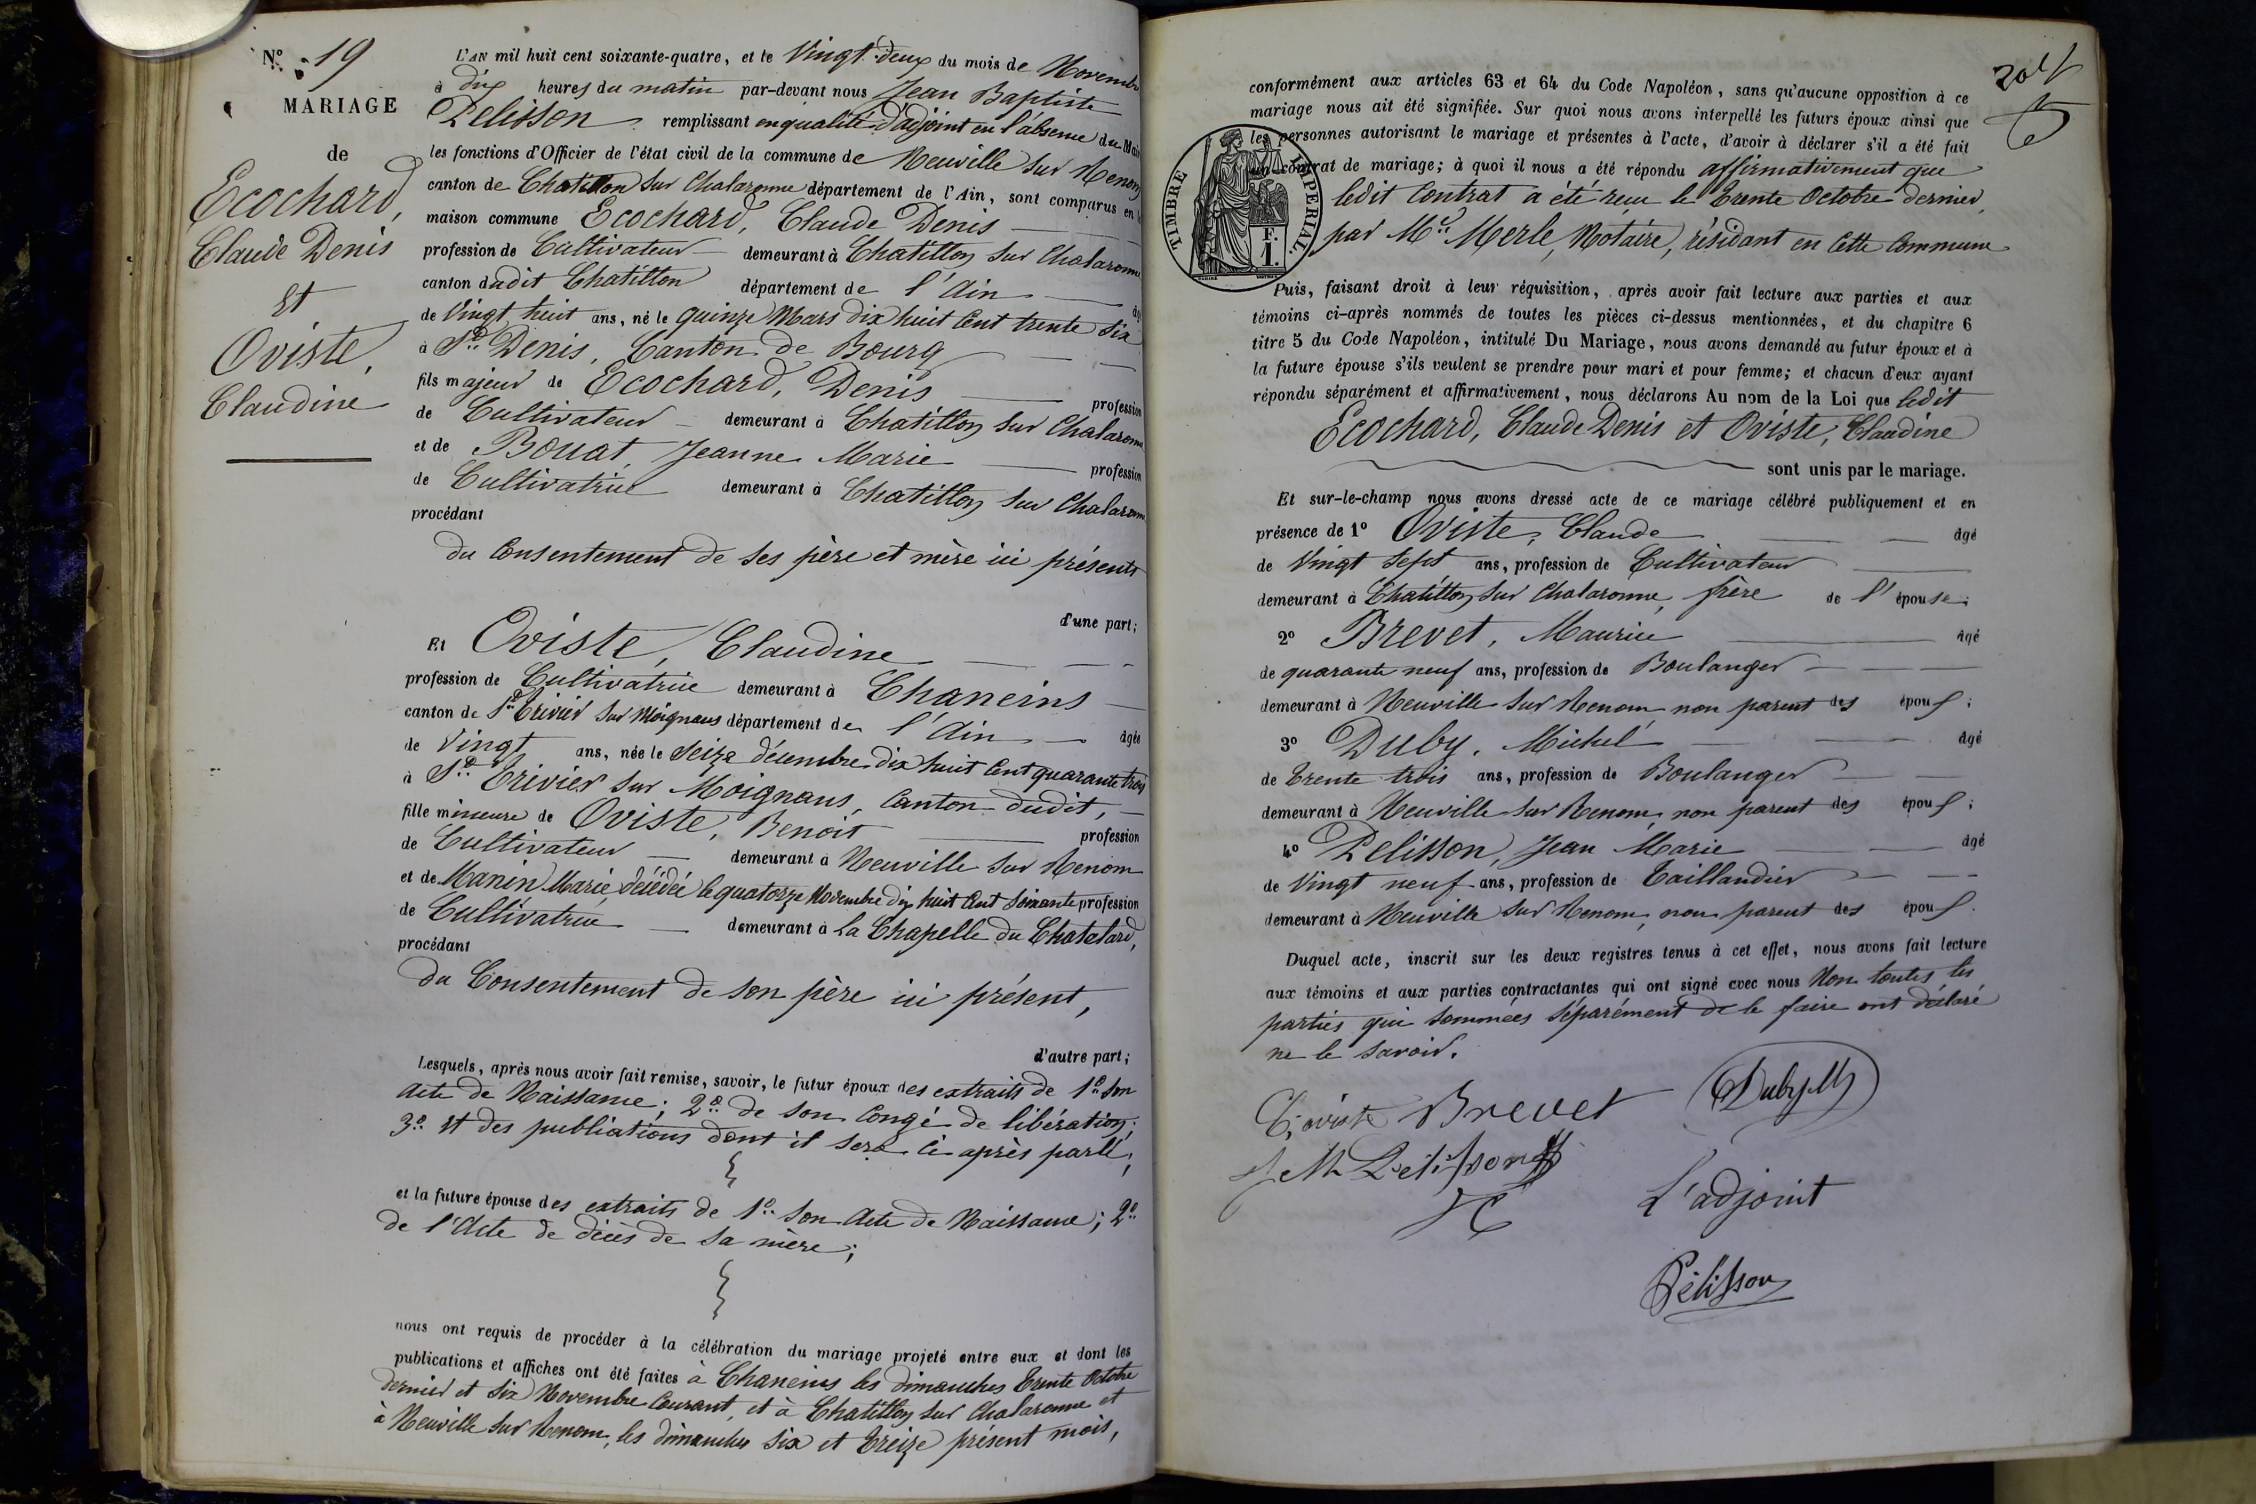 N.º 19
MARIAGE
de
Ecochard,
Claude Denis
Et
Oviste,
Claudine
L'AN mil huit cent soixante-quatre, et le Vingt deux du mois de Novembre
à dix heures du matin par-devant nous Jean Baptiste
Pelisson remplissant en qualité d'adjoint en l'absence du Maire
les fonctions d'Officier de l'état civil de la commune de Neuville sur Renom
canton de Chatillon sur Chalaronne département de l'Ain, sont comparus en la
maison commune Ecochard, Claude Denis
profession de Cultivateur demeurant à Chatillon sur Chalaronne
canton dudit Chatillon département de l'Ain âgé
de Vingt huit ans, né le quinze Mars dix huit Cent trente six
à St. Denis, Canton de Bourg
fils majeur de Ecochard, Denis profession
de Cultivateur demeurant à Chatillon sur Chalaronne
et de Bouat, Jeanne Marie profession
de Cultivatrice demeurant à Chatillon sur Chalaronne
procédant
du Consentement de ses père et mère ici présents
d'une part;
Et Oviste, Claudine
profession de Cultivatrice demeurant à Chaneins
canton de St. Trivier sur Moignans département de l'Ain âgée
de Vingt ans, née le Seize décembre dix huit Cent quarante trois
à St. Trivier sur Moignans, Canton dudit,
fille mineure de Oviste, Benoit profession
de Cultivateur demeurant à Neuville sur Renom
et de Manin Marie, décédée le quatorze Novembre dix huit Cent soixante profession
de Cultivatrice demeurant à La Chapelle du Chatelard,
procédant
du Consentement de son père ici présent,
d'autre part;
Lesquels, après nous avoir fait remise, savoir, le futur époux des extraits de 1º. son
Acte de Naissance; 2º. de son Congé de libération;
3º. Et des publications dont il sera Ci après parlé;
et la future épouse des extraits de 1º. son Acte de Naissance; 2º.
de l'Acte de décès de sa mère;
nous ont requis de procéder à la célébration du mariage projeté entre eux et dont les
publications et affiches ont été faites à Chaneins les dimanches Trente Octobre
dernier et six Novembre Courant, et à Chatillon sur Chalaronne et
à Neuville sur Renom, les dimanches six et Treize présent mois,
204
conformément aux articles 63 et 64 du Code Napoléon, sans qu'aucune opposition à ce
mariage nous ait été signifiée. Sur quoi nous avons interpellé les futurs époux ainsi que
les personnes autorisant le mariage et présentes à l'acte, d'avoir à déclarer s'il a été fait
un contrat de mariage; à quoi il nous a été répondu affirmativement que
ledit Contrat a été reçu le Trente Octobre dernier,
par Me. Merle, Notaire, résidant en Cette Commune
TIMBRE IMPERIAL.
F.
1.
Puis, faisant droit à leur réquisition, après avoir fait lecture aux parties et aux
témoins ci-après nommés de toutes les pièces ci-dessus mentionnées, et du chapitre 6
titre 5 du Code Napoléon, intitulé Du Mariage, nous avons demandé au futur époux et à
la future épouse s'ils veulent se prendre pour mari et pour femme; et chacun d'eux ayant
répondu séparément et affirmativement, nous déclarons Au nom de la Loi que ledit
Ecochard, Claude Denis et Oviste, Claudine
sont unis par le mariage.
Et sur-le-champ nous avons dressé acte de ce mariage célébré publiquement et en
présence de 1º Oviste, Claude âgé
de Vingt sept ans, profession de Cultivateur
demeurant à Chatillon sur Chalaronne, frère de l'épouse;
2º Brevet, Maurice âgé
de quarante neuf ans, profession de Boulanger
demeurant à Neuville sur Renom, non parent des époux;
3º Duby, Michel âgé
de Trente trois ans, profession de Boulanger
demeurant à Neuville sur Renom, non parent des époux;
4º Pelisson, Jean Marie âgé
de Vingt neuf ans, profession de Taillandier
demeurant à Neuville sur Renom, non parent des époux.
Duquel acte, inscrit sur les deux registres tenus à cet effet, nous avons fait lecture
aux témoins et aux parties contractantes qui ont signé avec nous Non toutes les
parties qui sommées séparément de le faire ont déclaré
ne le savoir.
C. oviste Brevet Duby M
J M Pelisson
L'adjoint
Pélisson